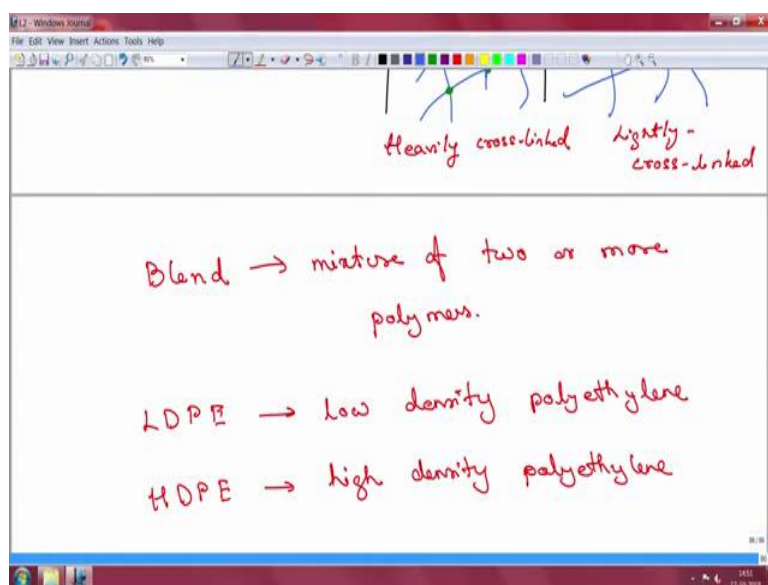 L2 - Windows Journal
File Edit View Insert Actions Tools Help
Heavily cross-linked
Lightly-
cross-linked
Blend → mixture of two or more
polymers.
LDPE → low density polyethylene
HDPE → high density polyethylene
14:51